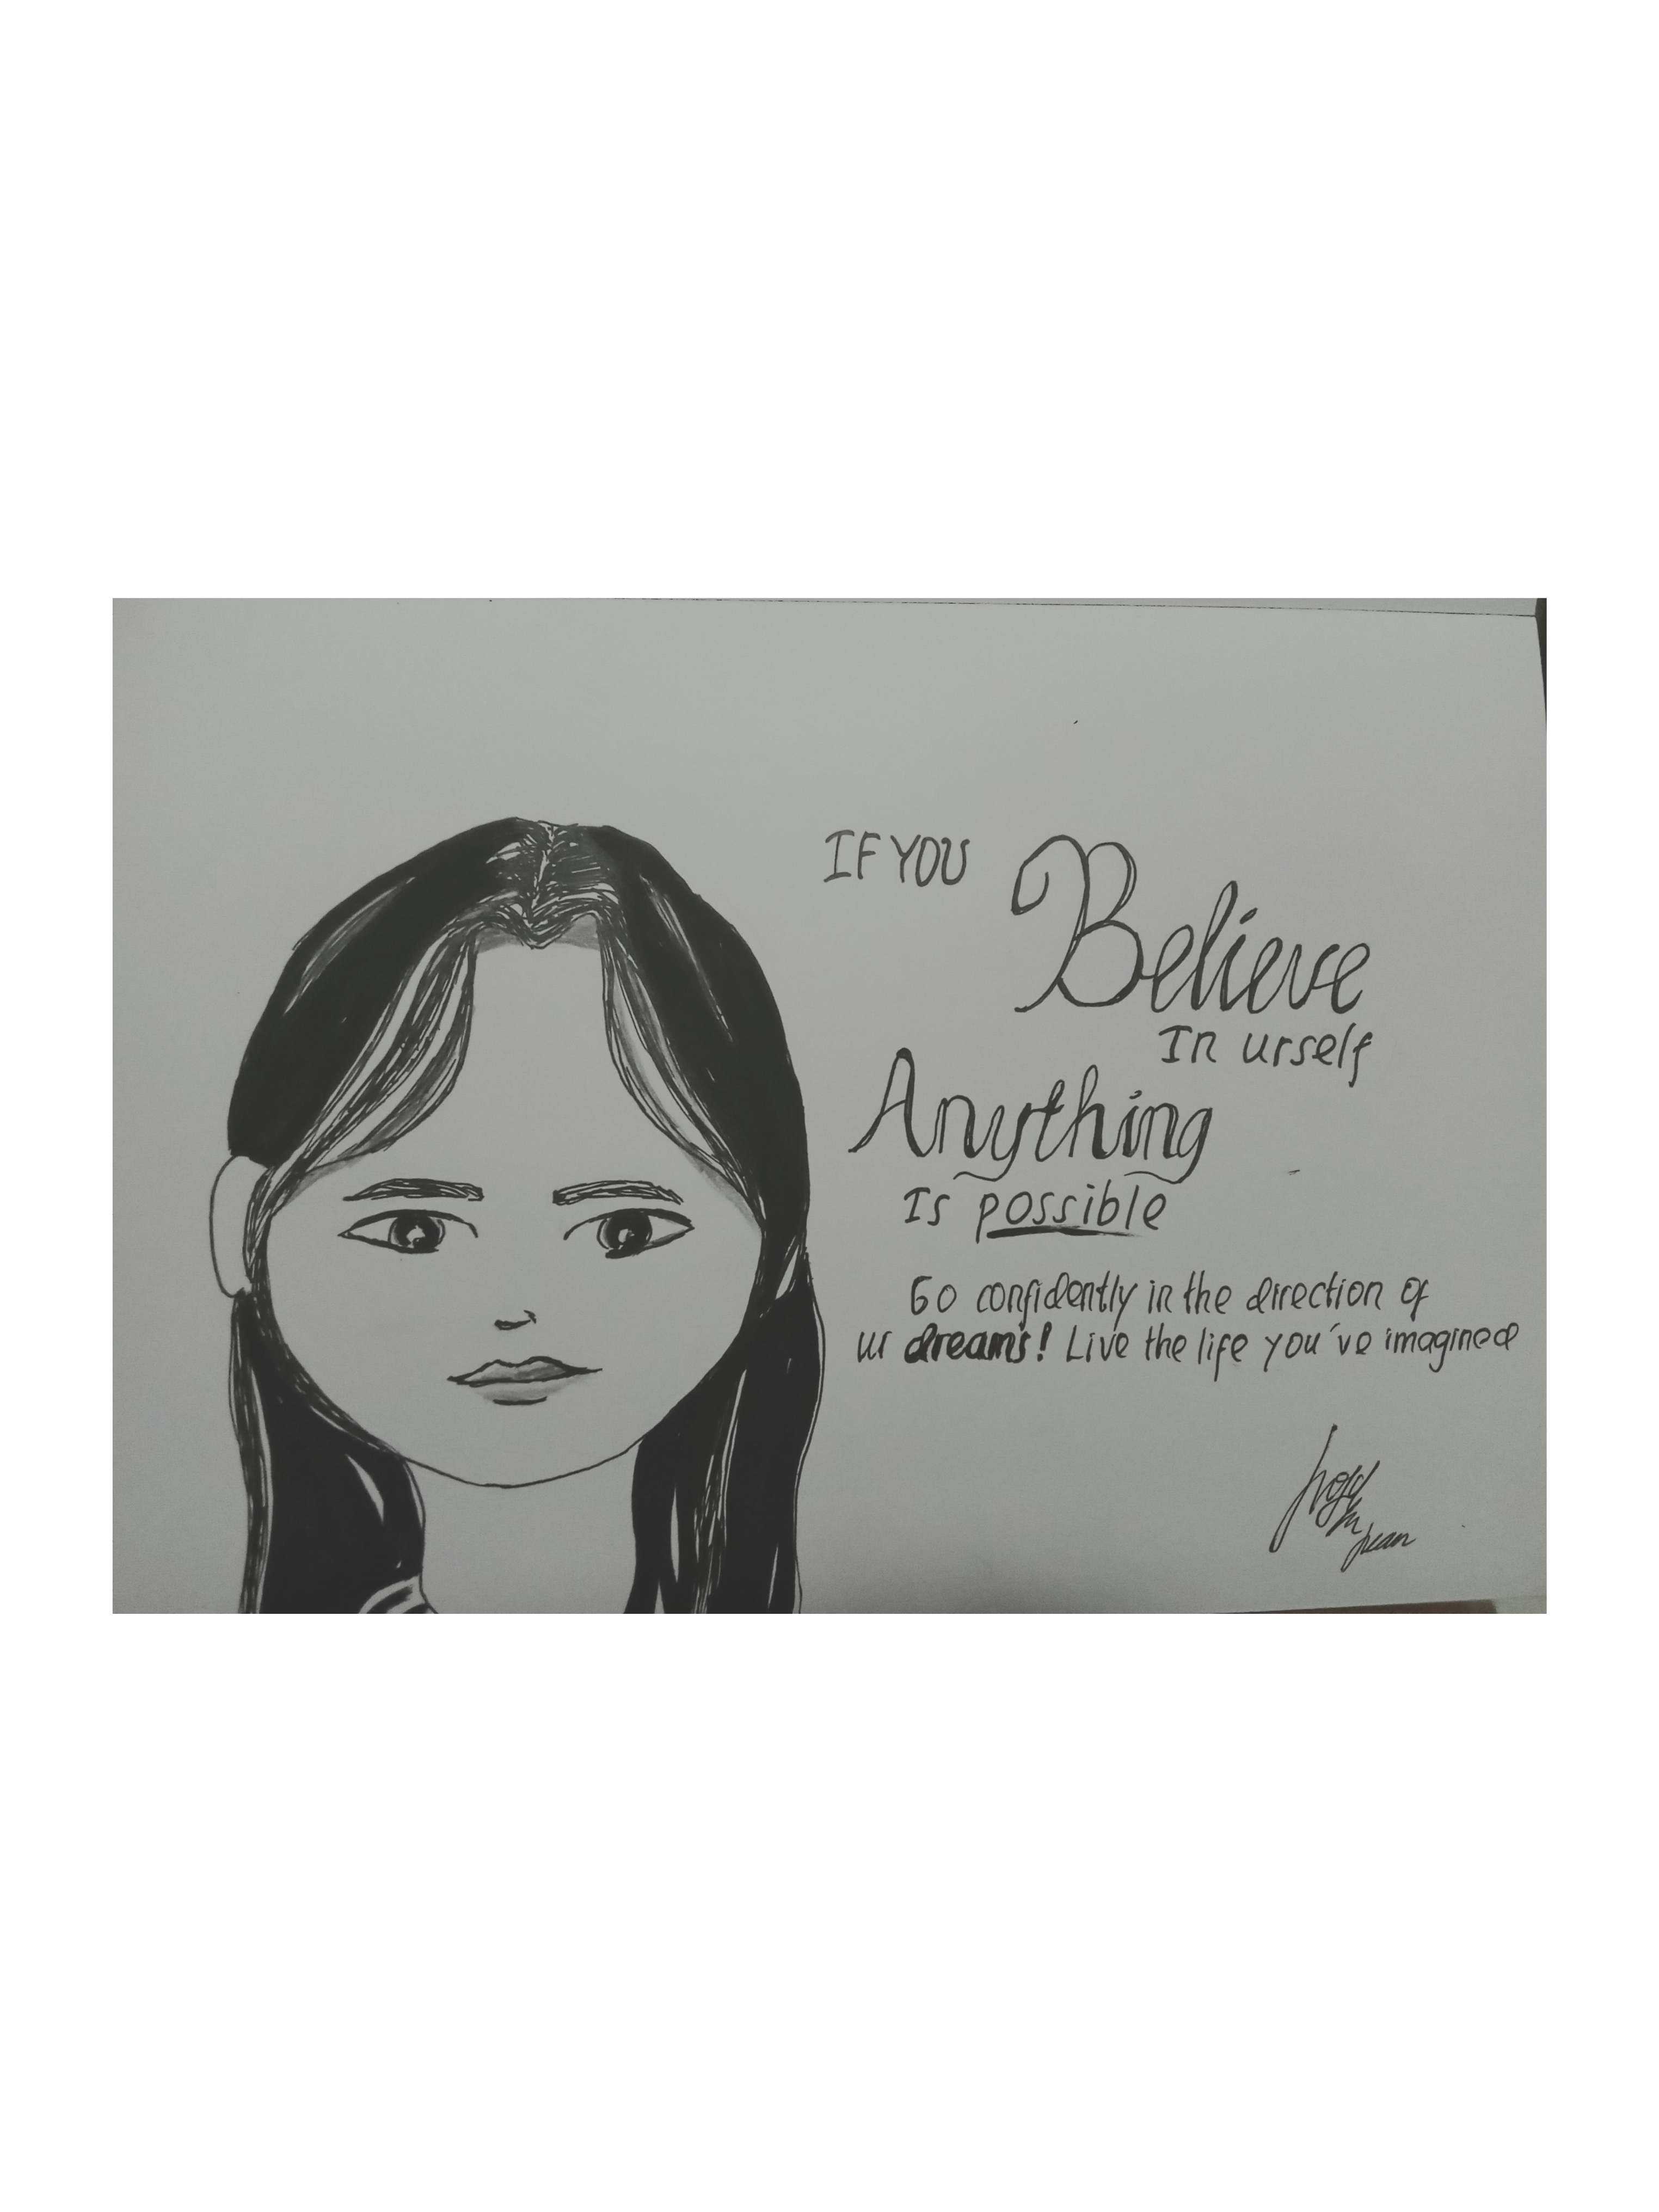 IF YOU
Believe
In urself
Anything
Is possible
Go confidently in the direction of
ur dreams! Live the life you've imagined